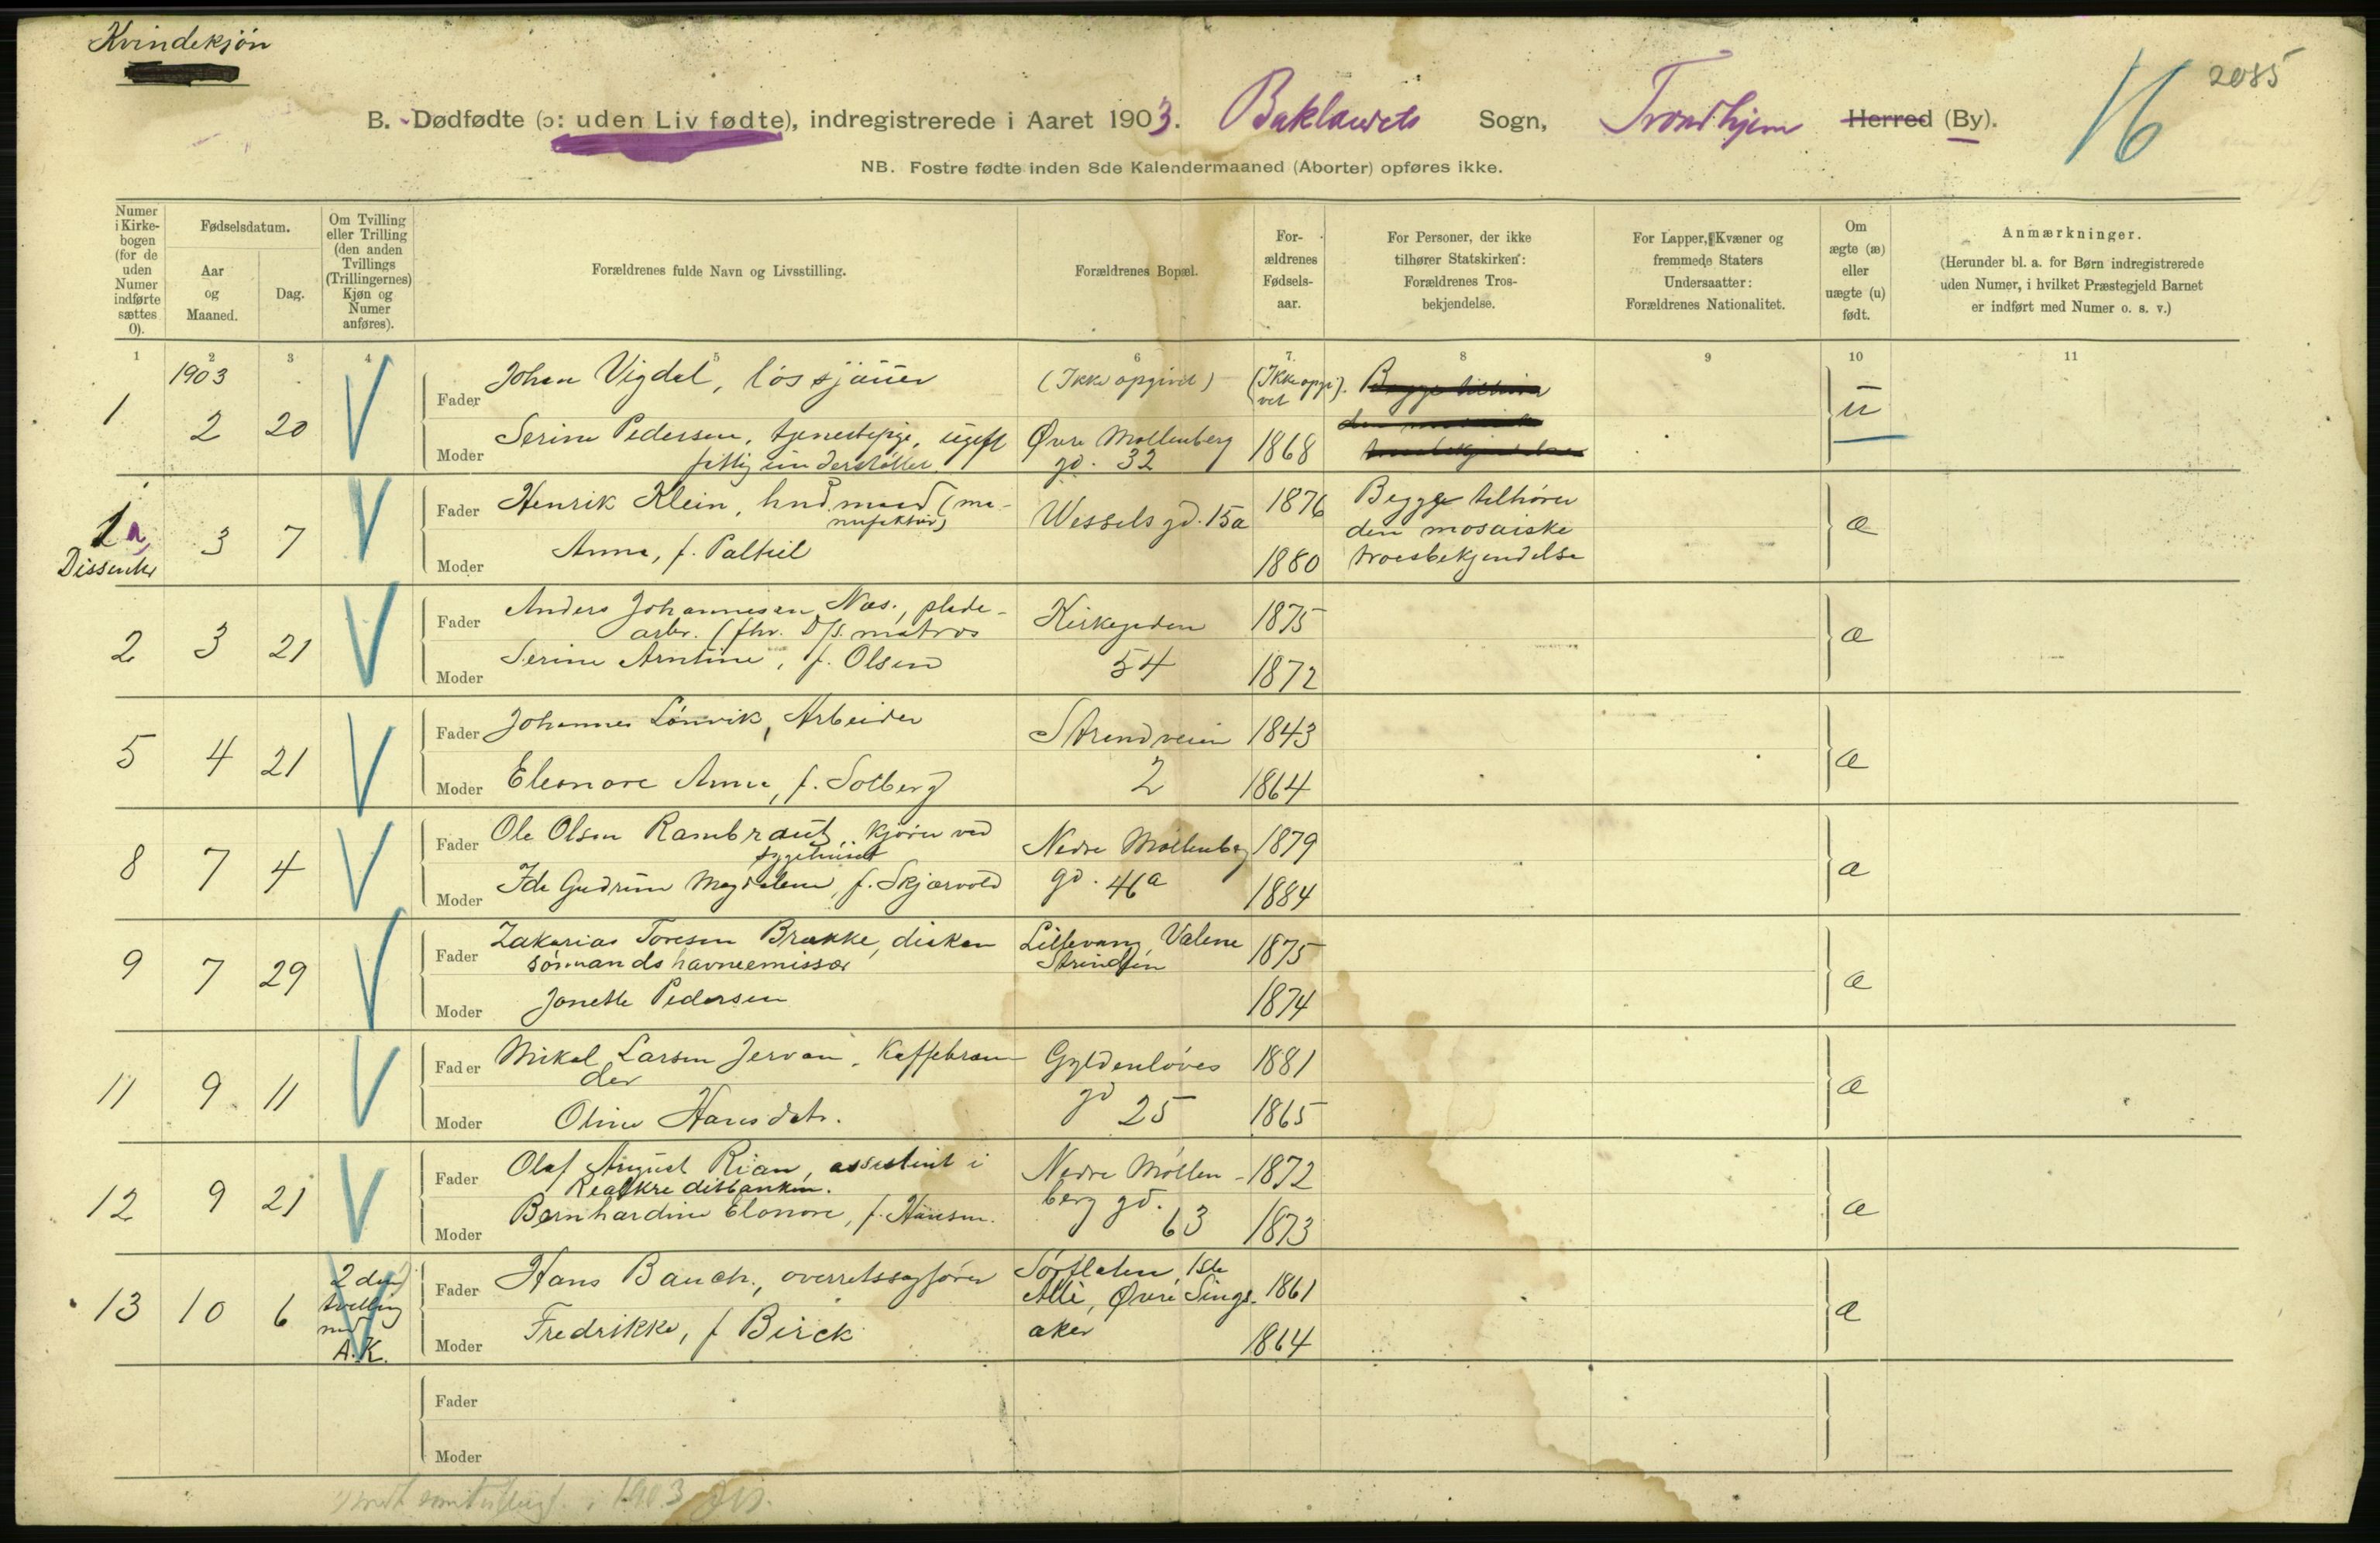 Kvindekjøn
2085
16
B. Dødfødte (ɔ: uden Liv fødte), indregistrerede i Aaret 1903. Baklandets Sogn, Trondhjem Herred (By).
NB. Fostre fødte inden 8de Kalendermaaned (Aborter) opføres ikke.
Numer i Kirke-bogen (for de uden Numer indførte sættes 0).
Fødselsdatum.
Aar og Maaned.
Dag.
Om Tvilling eller Trilling (den anden Tvillings (Trillingernes) Kjøn og Numer anføres).
Forældrenes fulde Navn og Livsstilling.
Forældrenes Bopæl.
For-ældrenes Fødsels-aar.
For Personer, der ikke tilhører Statskirken: Forældrenes Tros-bekjendelse.
For Lapper, Kvæner og fremmede Staters Undersaatter: Forældrenes Nationalitet.
Om ægte (æ) eller uægte (u) født.
Anmærkninger.
(Herunder bl. a. for Børn indregistrerede uden Numer, i hvilket Præstegjeld Barnet er indført med Numer o. s. v.)
1 2 3 4 5 6 7. 8 9 10 11
1903
1 2 20
Fader Johan Vigdal, løssjauer (Ikke opgivet) (Ikke opgi-vet).
Moder Serine Pedersen, tjenestepige, ugift Øvre Møllenberg 1868 u
fattigunderstøttet gd. 32
1a Dissenter 3 7
Fader Henrik Klein, hndmand (ma- 1876 Begge tilhører
nufaktur) Wessels gd. 15a den mosaiske æ
Moder Anna, f. Paltiel 1880 troesbekjendelse
2 3 21
Fader Anders Johannesen Næs, plade- Kirkegaden 1875
arbr. (fhv. D/S. matros æ
Moder Serine Arntine, f. Olsen 54 1872
5 4 21
Fader Johannes Lønvik, Arbeider Strandveien 1843
Moder Eleonore Anna, f. Solberg 2 1864 æ
8 7 4
Fader Ole Olsen Rambraut, kjører ved Nedre Møllenberg 1879
sygehuset
Moder Ida Gudrun Magdalena, f. Skjærvold gd. 46a 1884 æ
9 7 29
Fader Zakarias Toresen Brække, diakon Lillevang, Valene 1875
sømandshavneemissær Strinden
Moder Jonette Pedersen 1874 æ
11 9 11
Fader Mikal Larsen Jervan, Kaffebræn- Gyldenløves 1881
der
Moder Oline Hansdatr. gd 25 1865 æ
12 9 21
Fader Olaf August Rian, assistent i Nedre Møllen- 1872
Realkreditbanken. berg gd.
Moder Bernhardine Elonore, f. Hansen. 63 1873 æ
13 10 6 2den tvilling med A.K.
Fader Hans Bauck, overretssagfører Sørfleten, 1ste
Allè, Øvre Sings- 1861
Moder Fredrikke, f Birck aker 1864 æ
Fader
Moder
1903